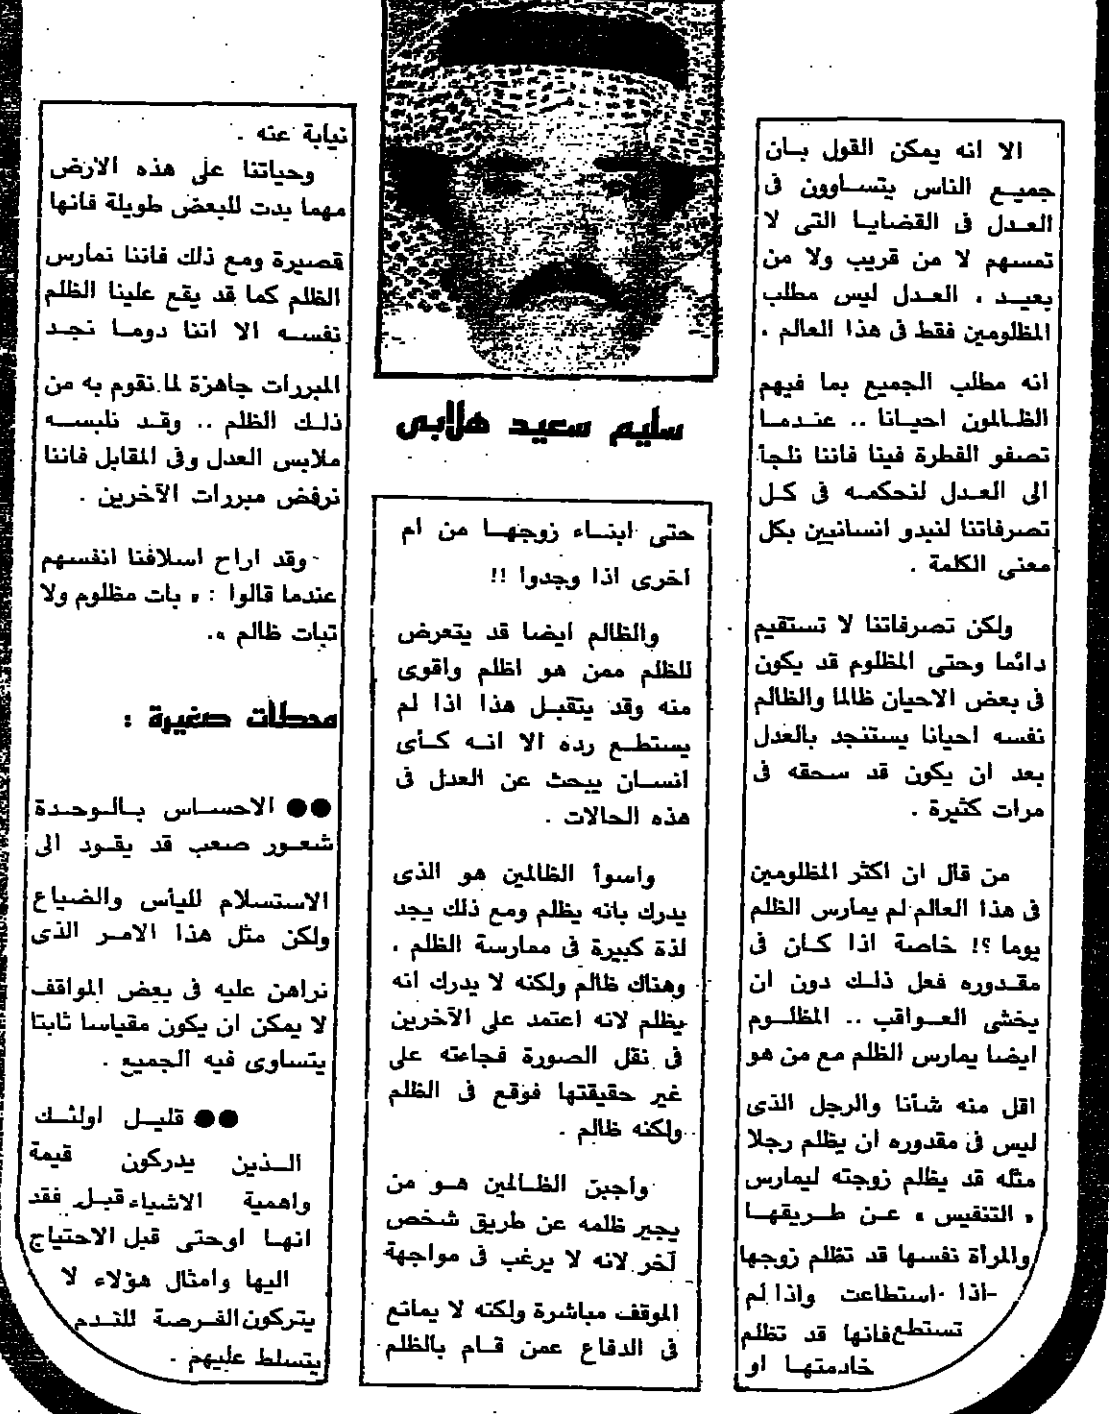 الا انه يمكن القول بـان
جميـع الناس يتسـاوون فى
العـدل فى القضايـا التى لا
تمسهم لا من قريب ولا من
بعيـد ، العـدل ليس مطلب
المظلومين فقط فى هذا العالم .
انه مطلب الجميع بما فيهم
الظـالمون احيـانا .. عنـدمـا
تصفو الفطرة فينا فاننا نلجأ
الى العـدل لنحكمـه فى كـل
تصرفاتنا لنبدو انسانيين بكل
معنى الكلمة .
ولكن تصرفاتنا لا تستقيم
دائما وحتى المظلوم قد يكون
فى بعض الاحيان ظالما والظالم
نفسه احيانا يستنجد بالعدل
بعد ان يكون قد سحقه فى
مرات كثيرة .
من قال ان اكثر المظلومين
فى هذا العالم لم يمارس الظلم
يوما ؟! خاصة اذا كـان فى
مقـدوره فعل ذلـك دون ان
يخشى العـواقب .. المظلـوم
ايضا يمارس الظلم مع من هو
اقل منه شأنا والرجل الذى
ليس فى مقدوره ان يظلم رجلا
مثله قد يظلم زوجته ليمارس
« التنفيس » عـن طـريقهـا
والمرأة نفسها قد تظلم زوجها
اذا استطاعت واذا لم
تستطع فانها قد تظلم
خادمتهـا او
سليم سعيد هلابى
حتى ابنـاء زوجهـا من ام
اخرى اذا وجدوا !!
والظالم ايضا قد يتعرض
للظلم ممن هو اظلم واقوى
منه وقد يتقبـل هذا اذا لم
يستطـع رده الا انـه كـأى
انسـان يبحث عن العدل فى
هذه الحالات .
واسوأ الظالمين هو الذى
يدرك بانه يظلم ومع ذلك يجد
لذة كبيرة فى ممارسة الظلم .
وهناك ظالم ولكنه لا يدرك انه
يظلم لانه اعتمد على الآخرين
فى نقل الصورة فجاءته على
غير حقيقتها فوقع فى الظلم
ولكنه ظالم .
واجبن الظـالمين هـو من
يجير ظلمه عن طريق شخص
آخر لانه لا يرغب فى مواجهة
الموقف مباشرة ولكنه لا يمانع
فى الدفاع عمن قـام بالظلم
نيابة عنه .
وحياتنا على هذه الارض
مهما بدت للبعض طويلة فانها
قصيرة ومع ذلك فاننا نمارس
الظلم كما قد يقع علينا الظلم
نفسـه الا اننا دومـا نجـد
المبررات جاهزة لما نقوم به من
ذلـك الظلم .. وقـد نلبسـه
ملابس العدل وفى المقابل فاننا
نرفض مبررات الآخرين .
وقد اراح اسلافنا انفسهم
عندما قالوا : « بات مظلوم ولا
تبات ظالم ».
محطات صغيرة :
●● الاحسـاس بـالـوحـدة
شعـور صعب قد يقـود الى
الاستسلام لليأس والضياع
ولكن مثل هذا الامـر الذى
نراهن عليه فى بعض المواقف
لا يمكن ان يكون مقياسا ثابتا
يتساوى فيه الجميع .
●● قليـل اولئـك
الـذين يدركون قيمة
واهمية الاشياء قبـل فقد
انهـا اوحتى قبل الاحتياج
اليها وامثال هؤلاء لا
يتركون الفـرصـة للنـدم
يتسلط عليهم .